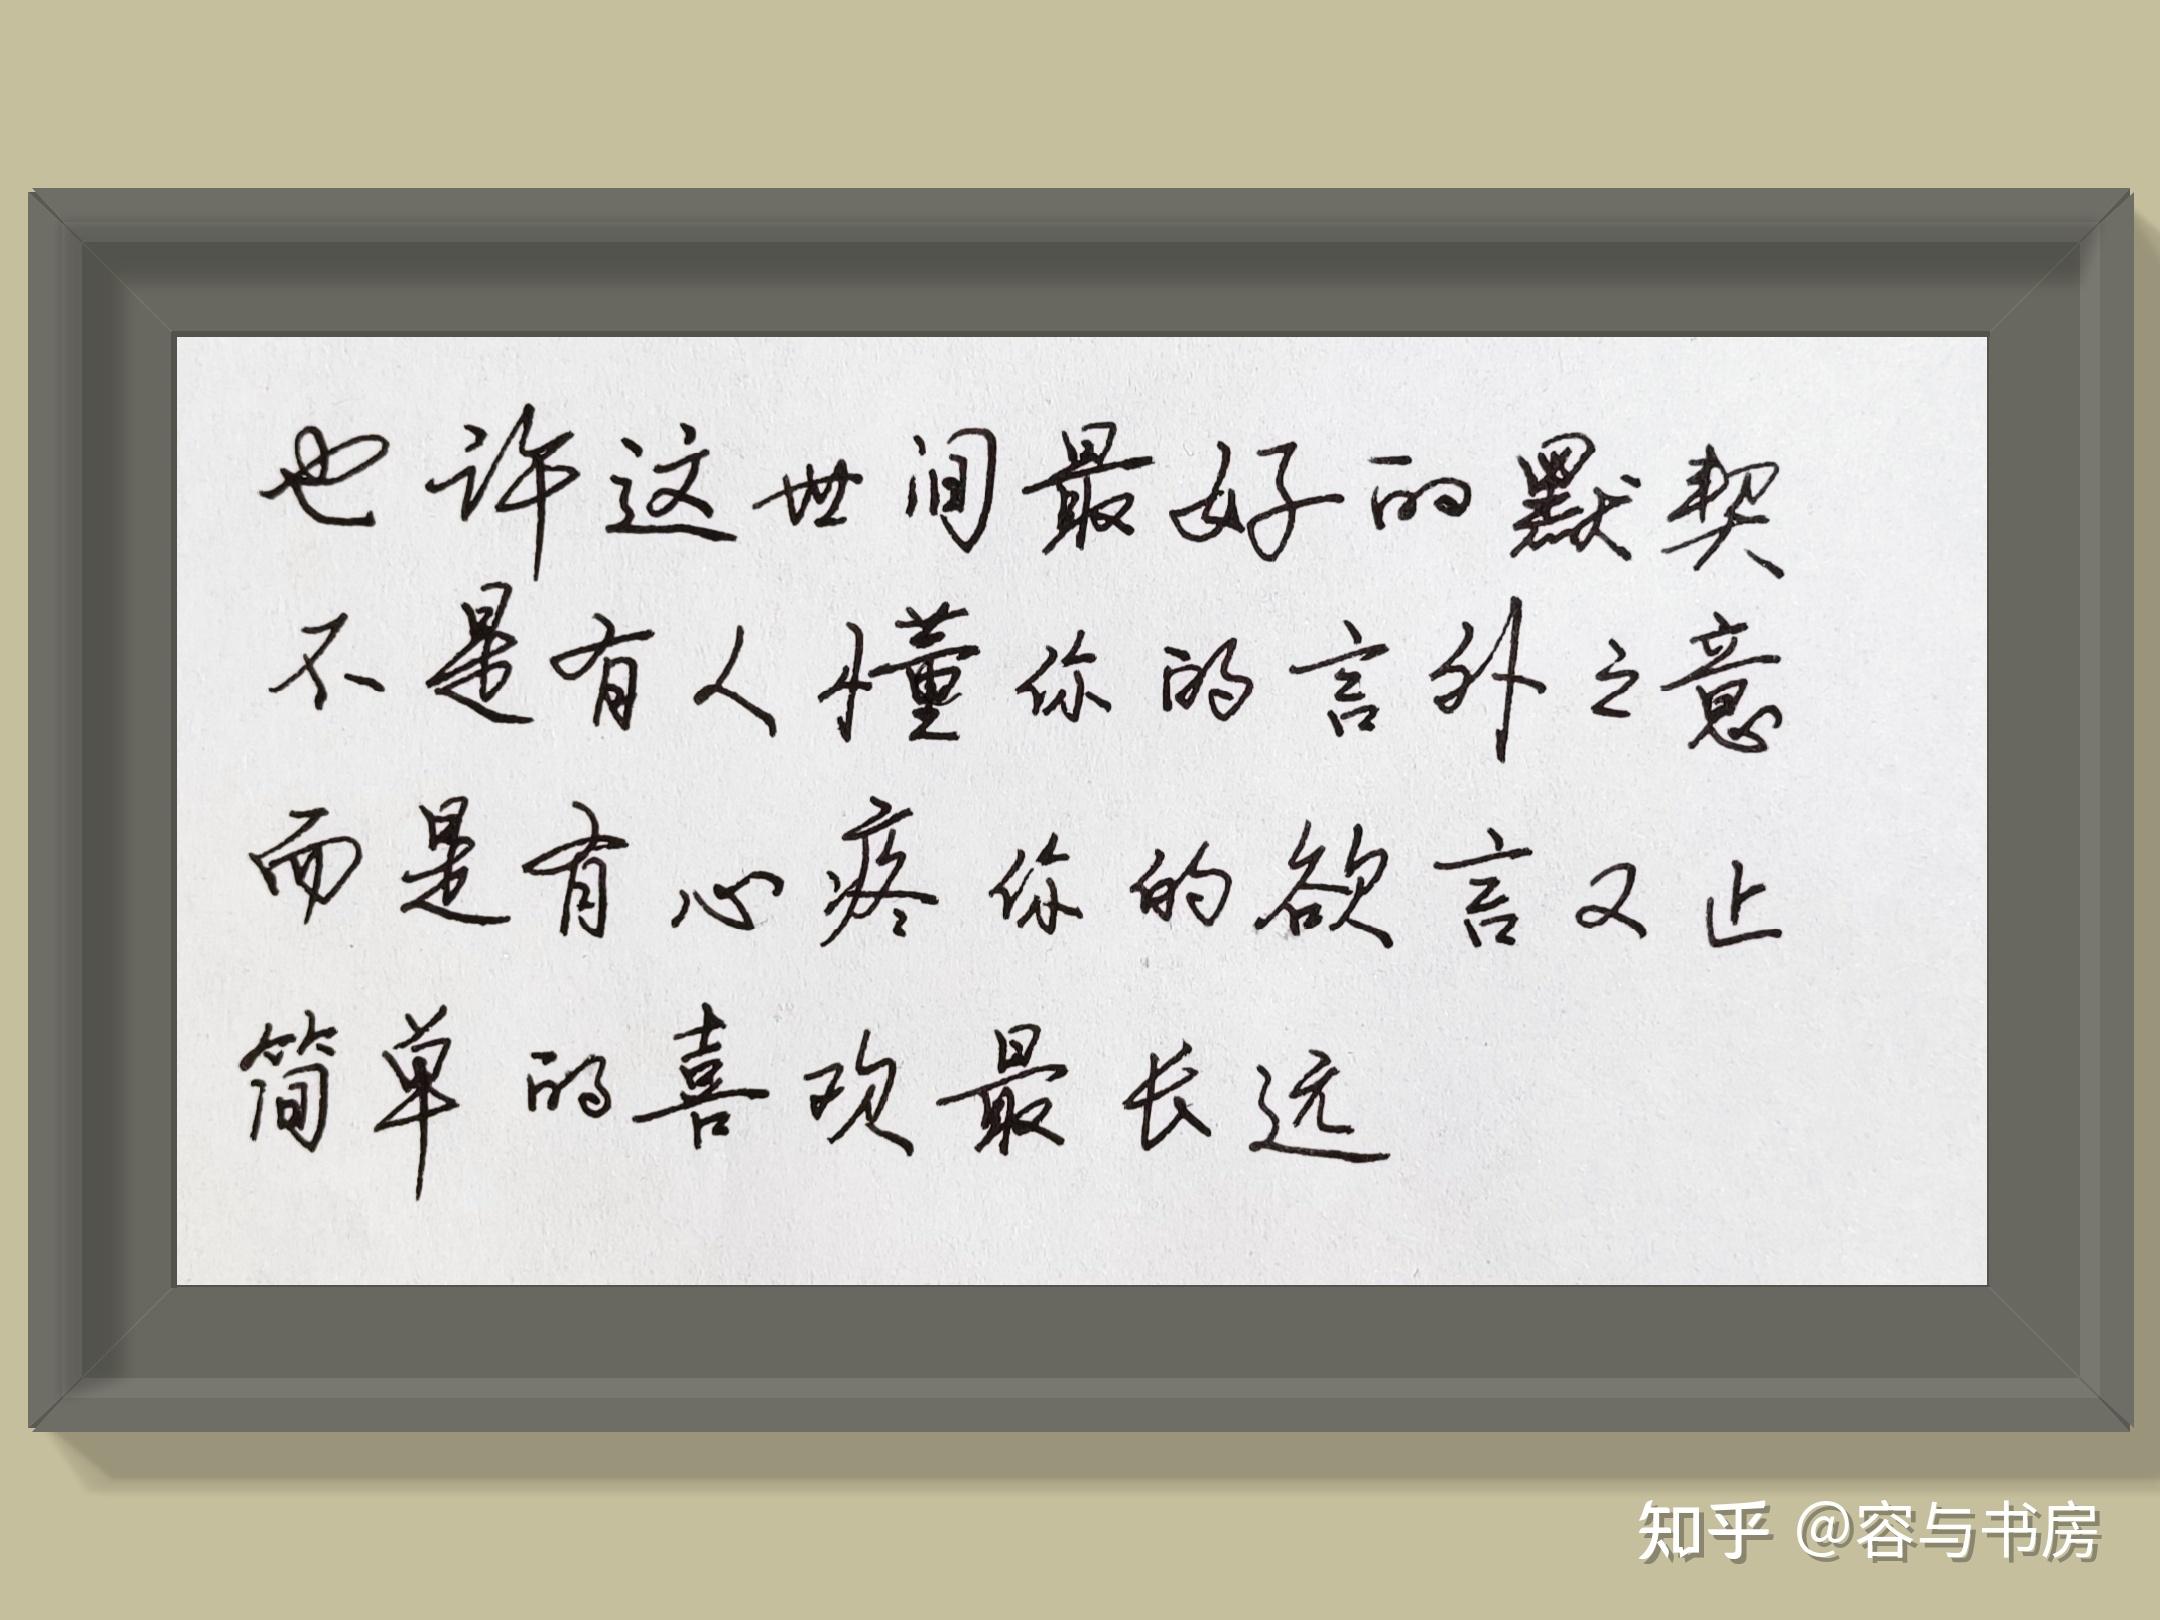 也许这世间最好的默契
不是有人懂你的言外之意
而是有心疼你的欲言又止
简单的喜欢最长远
知乎 @容与书房